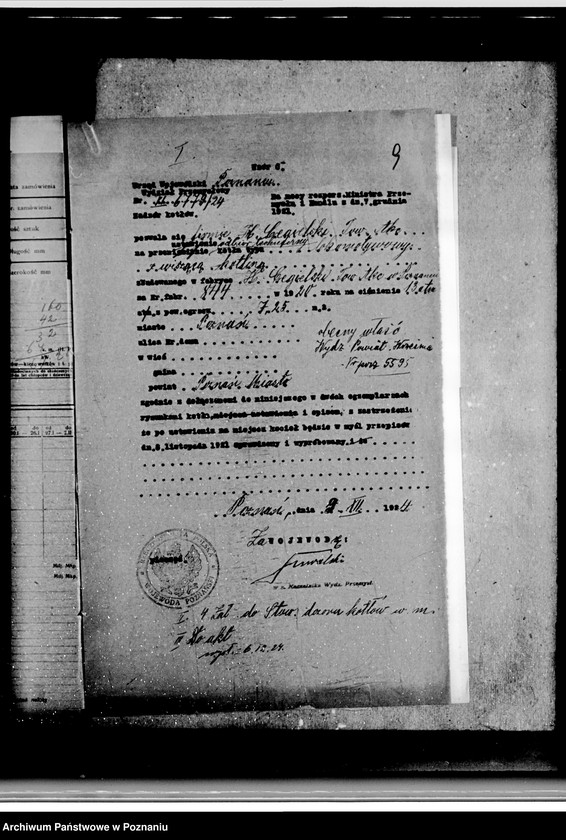 I
9
Wzór 6.
Urząd Wojewódzki Poznaniu.
Wydział Przemysłowy
Nr. 6178/24
Nadzór kotłów.
Na mocy rozporz. Ministra Prze-
mysłu i Handlu z dn. 9 grudnia
1921.
pozwala się firmie H. Cegielski Tow. Akc.
ustawienie
na przeniesienie kotła typu lokomotywowy
zbudowanego w fabryce H. Cegielski Tow Akc w Poznaniu
na Nr. fabr. w 1920 roku na ciśnienie 13 atm
atm. z pow. ogrzew. 7.25 m.2.
miasto Poznań
ulica Nr. domu
obecny właść
Wydz Powiat.
Nr porz 5595
w wieś
gmina
powiat Poznań Miasto
zgodnie z dołączonemi do niniejszego w dwóch egzemplarzach
rysunkami kotła, miejsca ustawienia i opisem, z zastrzeżeniem
że po ustawieniu na miejscu kocioł będzie w myśl przepisów
dn. 8. listopada 1921 sprawdzony i wypróbowany, i to
Poznań, dnia 2. XII. 1924
Za WOJEWODĘ:
w z. Naczelnika Wydz. Przemysł.
WOJEWODA POZNAŃSKI
I 4 Zał. do Stow. dozoru kotłów w m.
II Do akt
6.12.24.
ść zamówienia
r. zamówienia
lość sztuk
ługość mm
zerokość mm
160
42
Archiwum Państwowe w Poznaniu